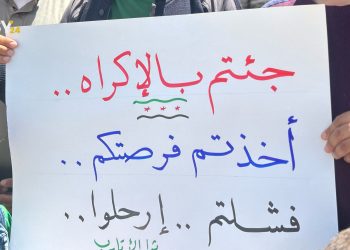 جئتم بالإكراه..
أخذتم فرصتكم..
فشلتم.. إرحلوا..